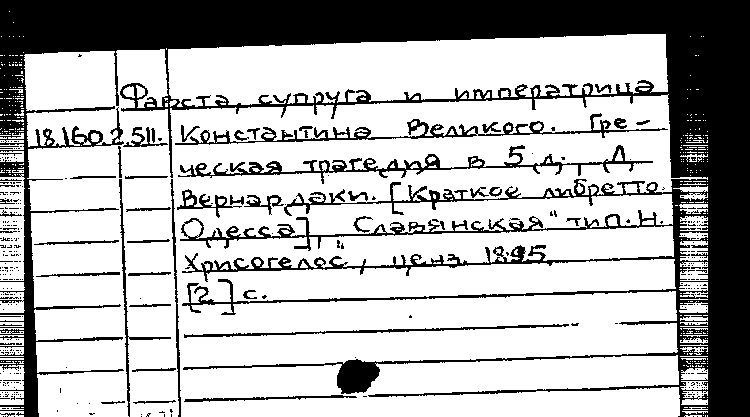 Фавста, супруга и императрица
18.160.2.511. Константина Великого. Гре-
ческая трагедия в 5 д., Д.
Вернардаки. [Краткое либретто.
Одесса], "Славянская" тип. Н.
Хрисогелос, ценз. 1895.
[2] с.